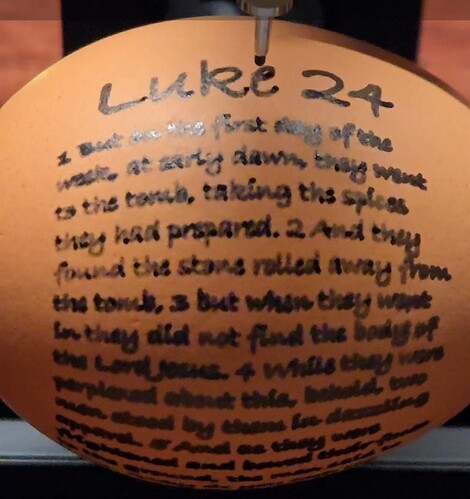 Luke 24
1 But on the first day of the
week, at early dawn, they went
to the tomb, taking the spices
they had prepared. 2 And they
found the stone rolled away from
the tomb, 3 but when they went
in they did not find the body of
the Lord Jesus. 4 While they were
perplexed about this, behold, two
men stood by them in dazzling
apparel. 5 And as they were
frightened and bowed their